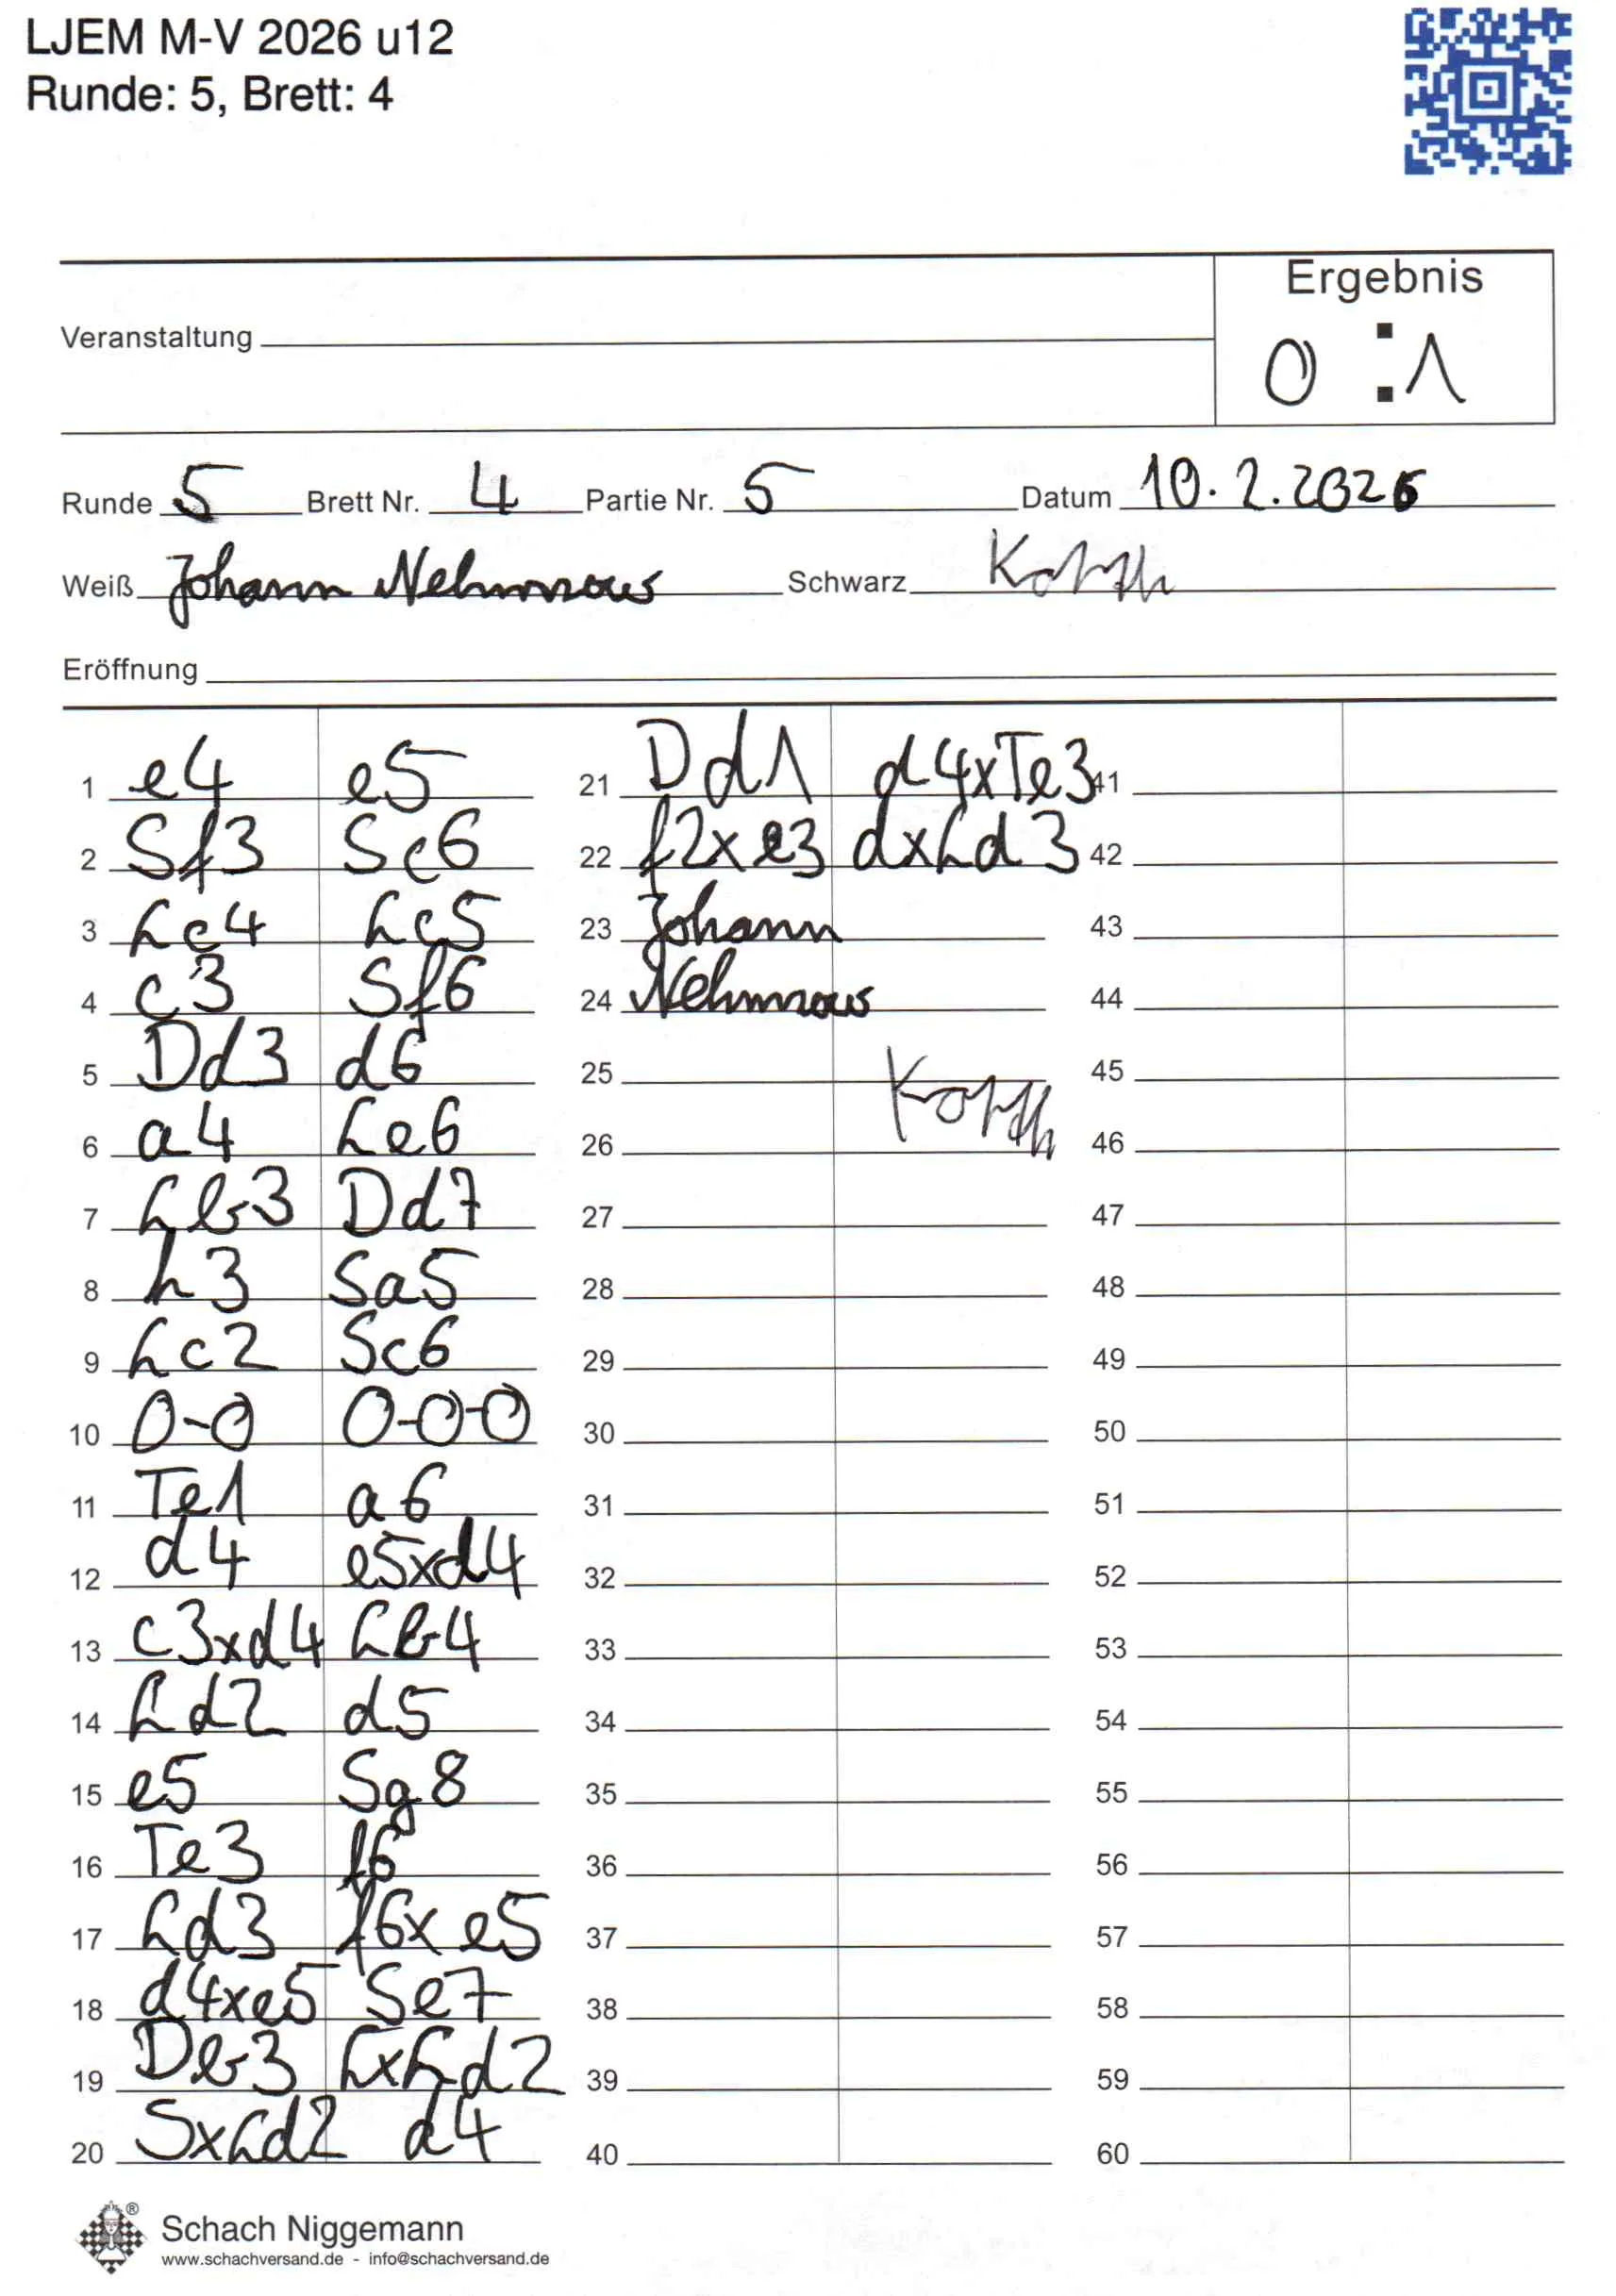 LJEM M-V 2026 u12
Runde: 5, Brett: 4
Ergebnis
0 : 1
Veranstaltung
Runde 5 Brett Nr. 4 Partie Nr. 5 Datum 10.2.2026
Weiß Johann Nehmzow Schwarz
Eröffnung
1 e4 e5 21 Dd1 d4xTe3 41
2 Sf3 Sc6 22 f2xe3 dxLd3 42
3 Lc4 Lc5 23 Johann 43
4 c3 Sf6 24 Nehmzow 44
5 Dd3 d6 25 45
6 a4 Le6 26 46
7 Lb3 Dd7 27 47
8 h3 Sa5 28 48
9 Lc2 Sc6 29 49
10 0-0 0-0-0 30 50
11 Te1 a6 31 51
12 d4 e5xd4 32 52
13 c3xd4 Lb4 33 53
14 Ld2 d5 34 54
15 e5 Sg8 35 55
16 Te3 f6 36 56
17 Ld3 f6xe5 37 57
18 d4xe5 Se7 38 58
19 Db3 LxLd2 39 59
20 SxLd2 d4 40 60
®
Schach Niggemann
www.schachversand.de - info@schachversand.de